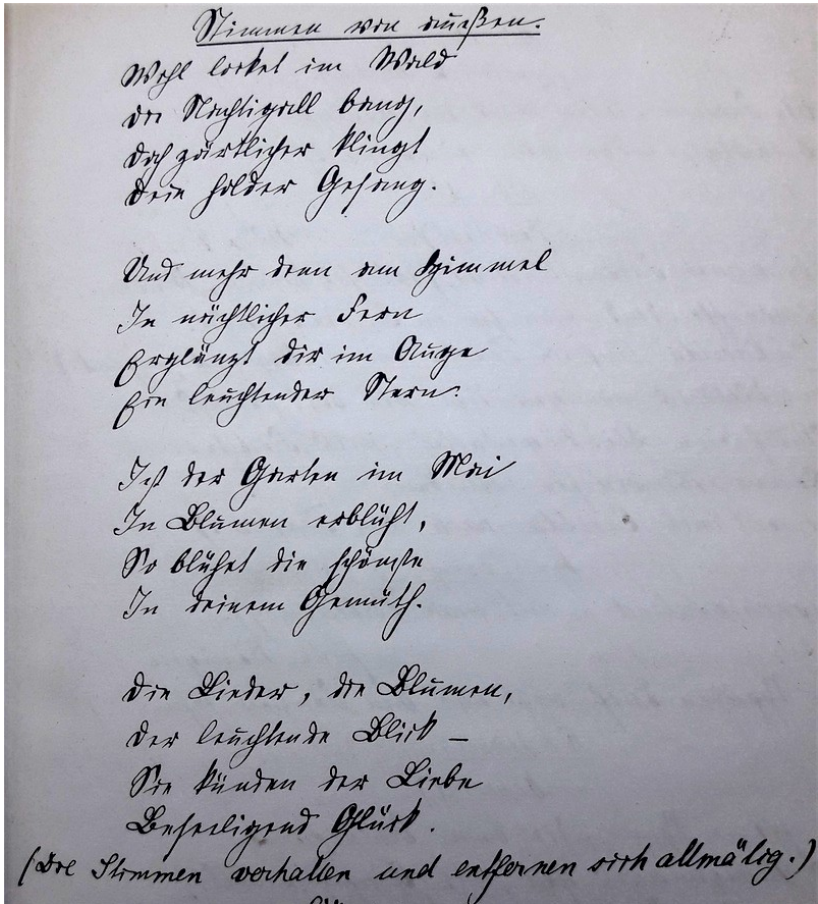 Stimmen von außen.
Wohl locket im Wald
die Nachtigall bang,
doch zärtlicher klingt
Dein holder Gesang.
Und mehr denn am Himmel
In nächtlicher Fern
Erglänzt dir im Auge
Ein leuchtender Stern.
Ist der Garten im Mai
In Blumen erblüht,
So blühet die schönste
In deinem Gemüth.
Die Lieder, die Blumen,
Der leuchtende Blick –
Sie künden der Liebe
Beseeligend Glück.
(Die Stimmen verhallen und entfernen sich allmälig.)